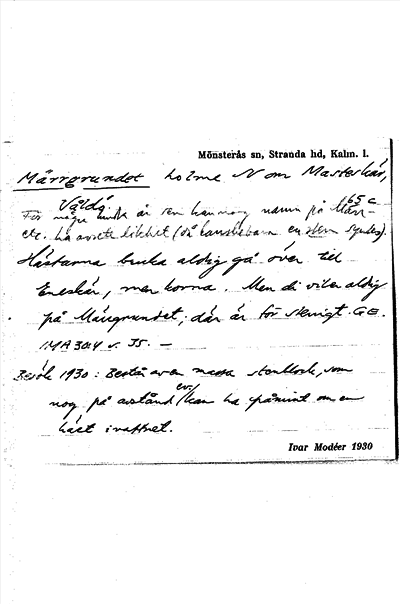 Mönsterås sn, Stranda hd, Kalm. l.
Märrgrundet holme N om Masteskär,
Våldö. 65 c
För några år sen namn på Märr-
etc. ha avsett likhet (då en sten syntes).
Hästarna bruka aldrig gå över till
Eneskär, men korna. Men di vilar aldrig
på Märgrundet; där är för stenigt. GE.
s. 35. —
Besök 1930: Består av en massa stenblock, som
nog på avstånd ev. kan ha påmint om en
häst i vattnet.
Ivar Modéer 1930